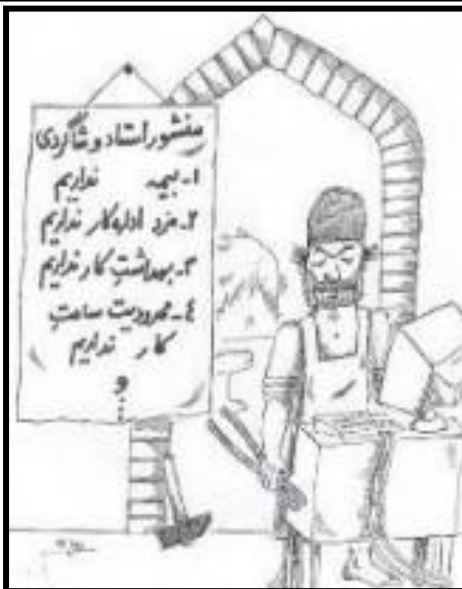 منشور استاد و شاگردی
۱- بیمه نداریم
۲- مزد اداره کار نداریم
۳- بهداشتِ کار نداریم
۴- محدودیت ساعتِ
کار نداریم
و